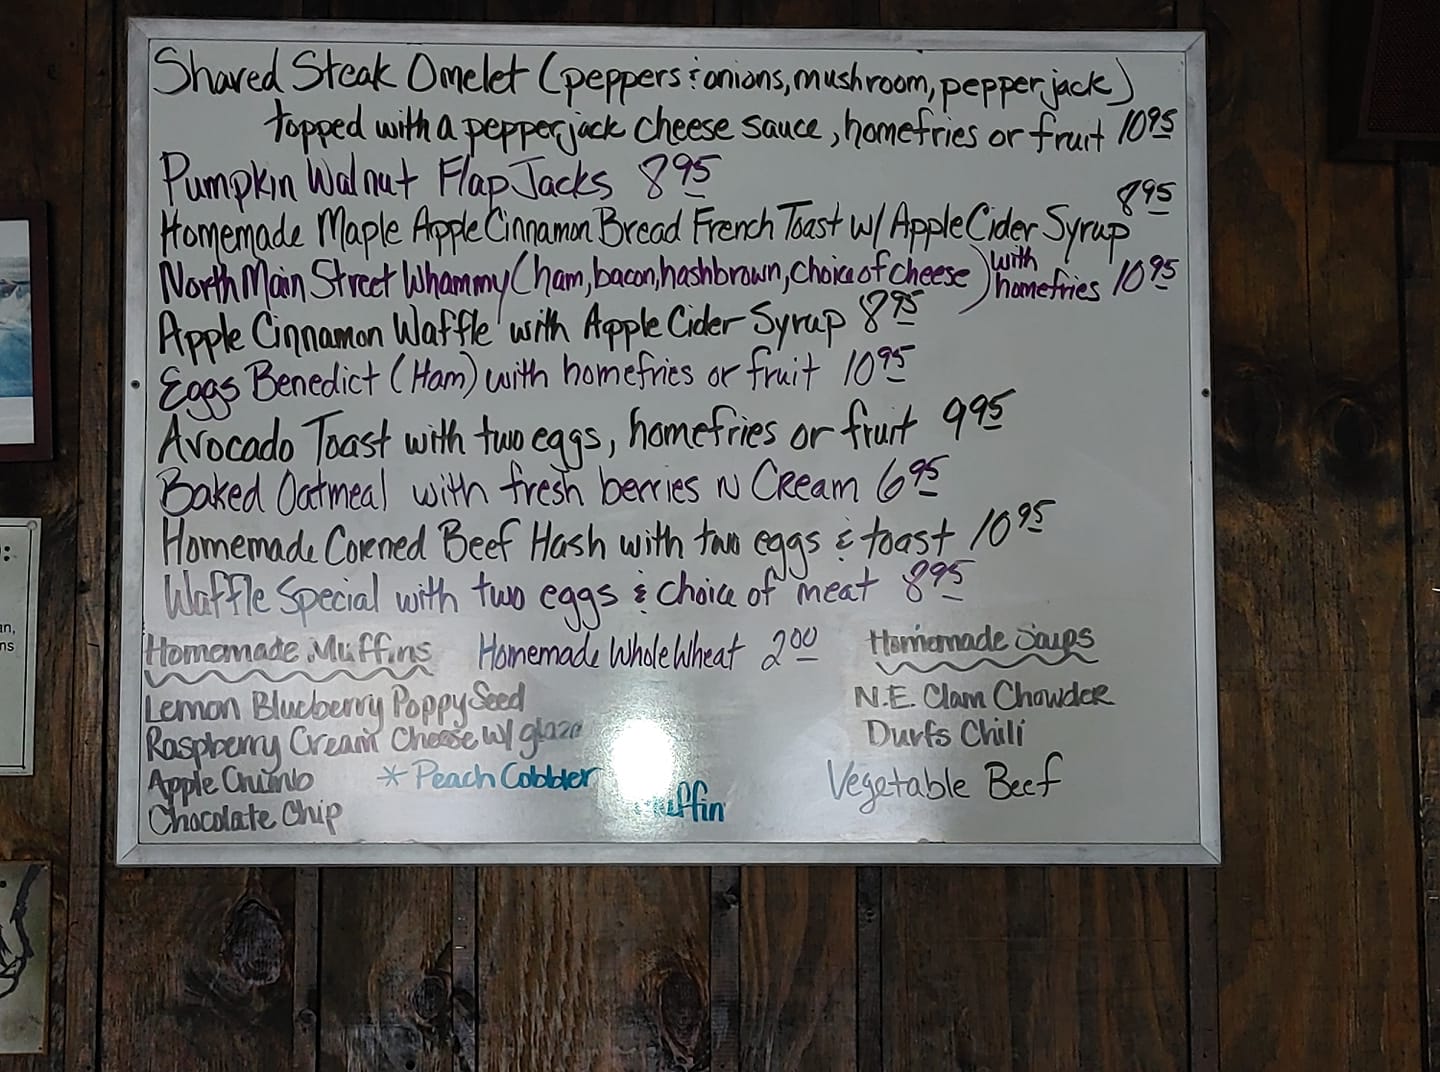 Shared Steak Omelet (peppers & onions, mushroom, pepperjack)
topped with a pepperjack cheese sauce, homefries or fruit 10 95
Pumpkin Walnut Flap Jacks 8 95
Homemade Maple Apple Cinnamon Bread French Toast w/ Apple Cider Syrup 8 95
North Main Street Whammy (ham, bacon, hashbrown, choice of cheese) with homefries 10 95
Apple Cinnamon Waffle with Apple Cider Syrup 8 95
Eggs Benedict (Ham) with homefries or fruit 10 95
Avocado Toast with two eggs, homefries or fruit 9 95
Baked Oatmeal with fresh berries N Cream 6 95
Homemade Corned Beef Hash with two eggs & toast 10 95
Waffle Special with two eggs & choice of meat 8 95
Homemade Muffins
Lemon Blueberry Poppy Seed
Raspberry Cream Cheese w/ glaze
Apple Crumb
Chocolate Chip
* Peach Cobbler
Muffin
Homemade Whole Wheat 2 00
Homemade Soups
N.E. Clam Chowder
Durfs Chili
Vegetable Beef